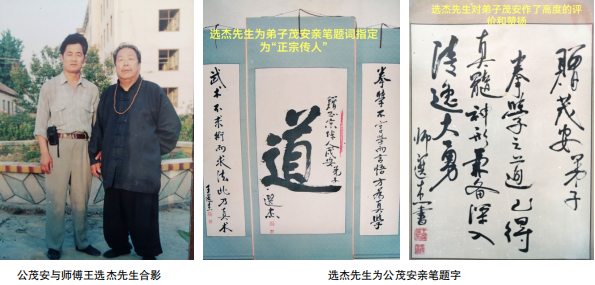 选杰先生为弟子茂安亲笔题词指定
为“正宗传人”
拳学不言学而言悟方为真学
赠正宗传人茂安弟子
道
选杰
武术不求术而求法此乃真术
王选杰
选杰先生对弟子茂安作了高度的评
价和赞扬
赠茂安弟子
拳学之道已得
真髓神形兼备深入
清逸大勇
师选杰书
公茂安与师傅王选杰先生合影
选杰先生为公茂安亲笔题字